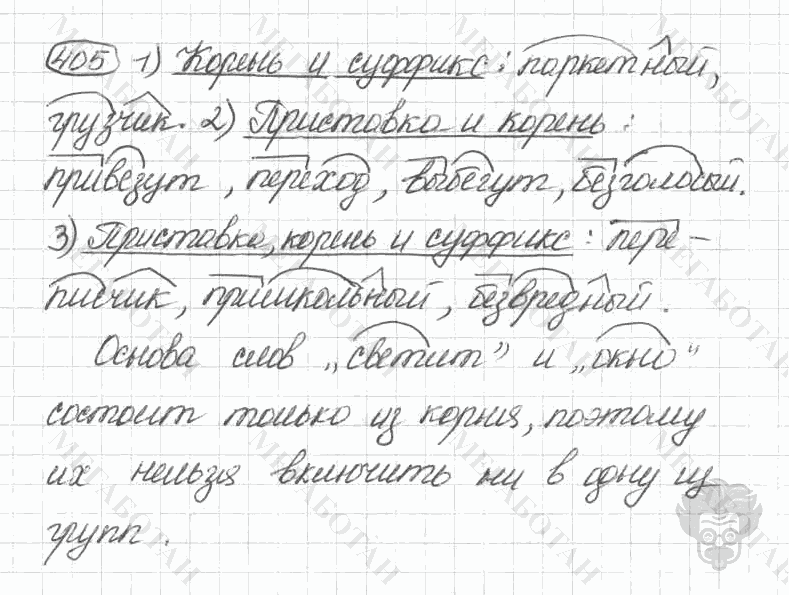 405 1) Корень и суффикс: паркетный,
грузчик. 2) Приставка и корень:
привезут, переход, выбегут, безголосый.
3) Приставка, корень и суффикс: пере-
писчик, пришкольный, безвредный.
Основа слов „светит" и „окно"
состоит только из корня, поэтому
их нельзя включить ни в одну из
групп.